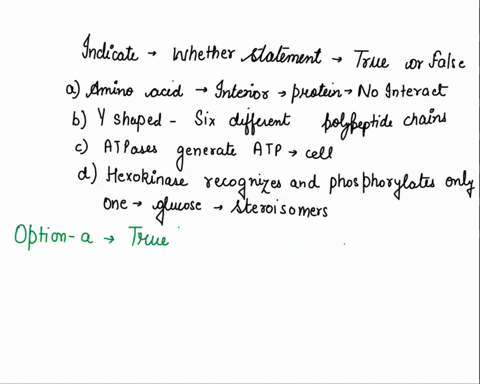 Indicate → Whether statement → True or False
a) Amino acid → Interior → protein → No Interact
b) Y shaped - Six different polypeptide chains
c) ATPases generate ATP → cell
d) Hexokinase recognizes and phosphorylates only
one → glucose → steroisomers
Option-a → True